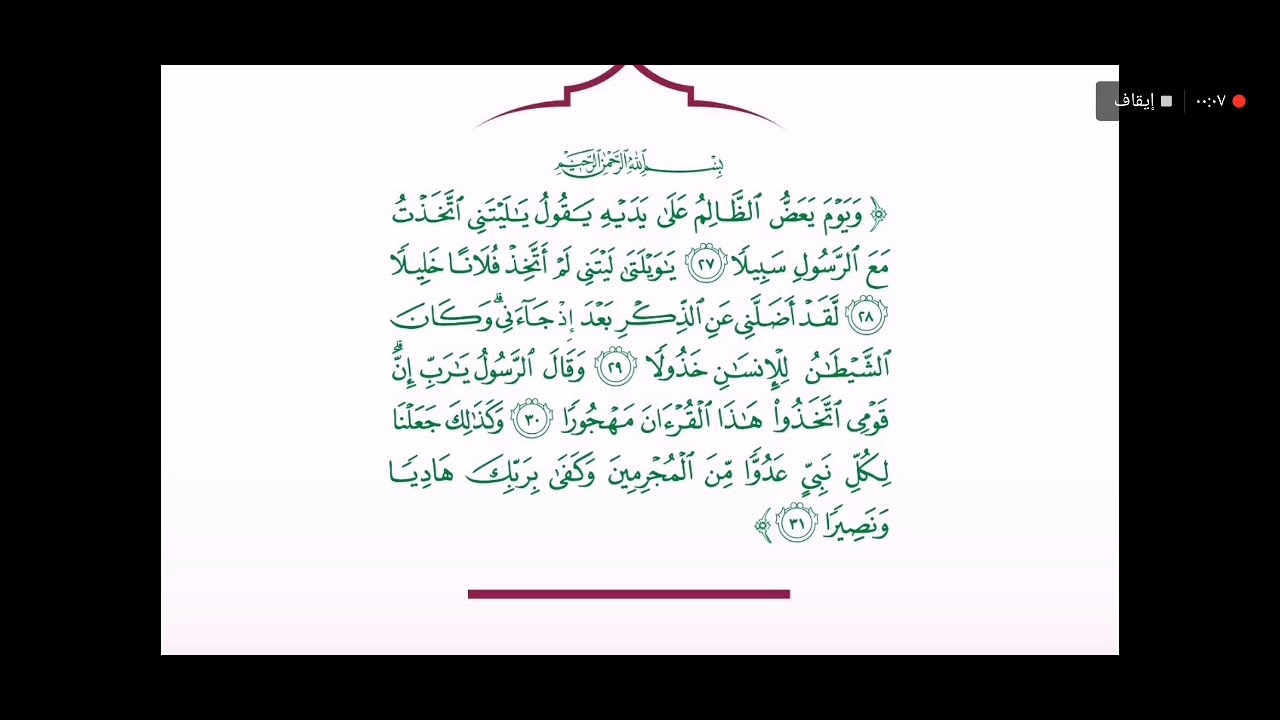 إيقاف ٠٠:٠٧
بِسْمِ اللَّهِ الرَّحْمَٰنِ الرَّحِيمِ
﴿ وَيَوْمَ يَعَضُّ ٱلظَّالِمُ عَلَىٰ يَدَيْهِ يَقُولُ يَٰلَيْتَنِى ٱتَّخَذْتُ
مَعَ ٱلرَّسُولِ سَبِيلًا ٢٧ يَٰوَيْلَتَىٰ لَيْتَنِى لَمْ أَتَّخِذْ فُلَانًا خَلِيلًا
٢٨ لَّقَدْ أَضَلَّنِى عَنِ ٱلذِّكْرِ بَعْدَ إِذْ جَآءَنِى ۗ وَكَانَ
ٱلشَّيْطَٰنُ لِلْإِنسَٰنِ خَذُولًا ٢٩ وَقَالَ ٱلرَّسُولُ يَٰرَبِّ إِنَّ
قَوْمِى ٱتَّخَذُوا۟ هَٰذَا ٱلْقُرْءَانَ مَهْجُورًا ٣٠ وَكَذَٰلِكَ جَعَلْنَا
لِكُلِّ نَبِىٍّ عَدُوًّا مِّنَ ٱلْمُجْرِمِينَ وَكَفَىٰ بِرَبِّكَ هَادِيًا
وَنَصِيرًا ٣١ ﴾